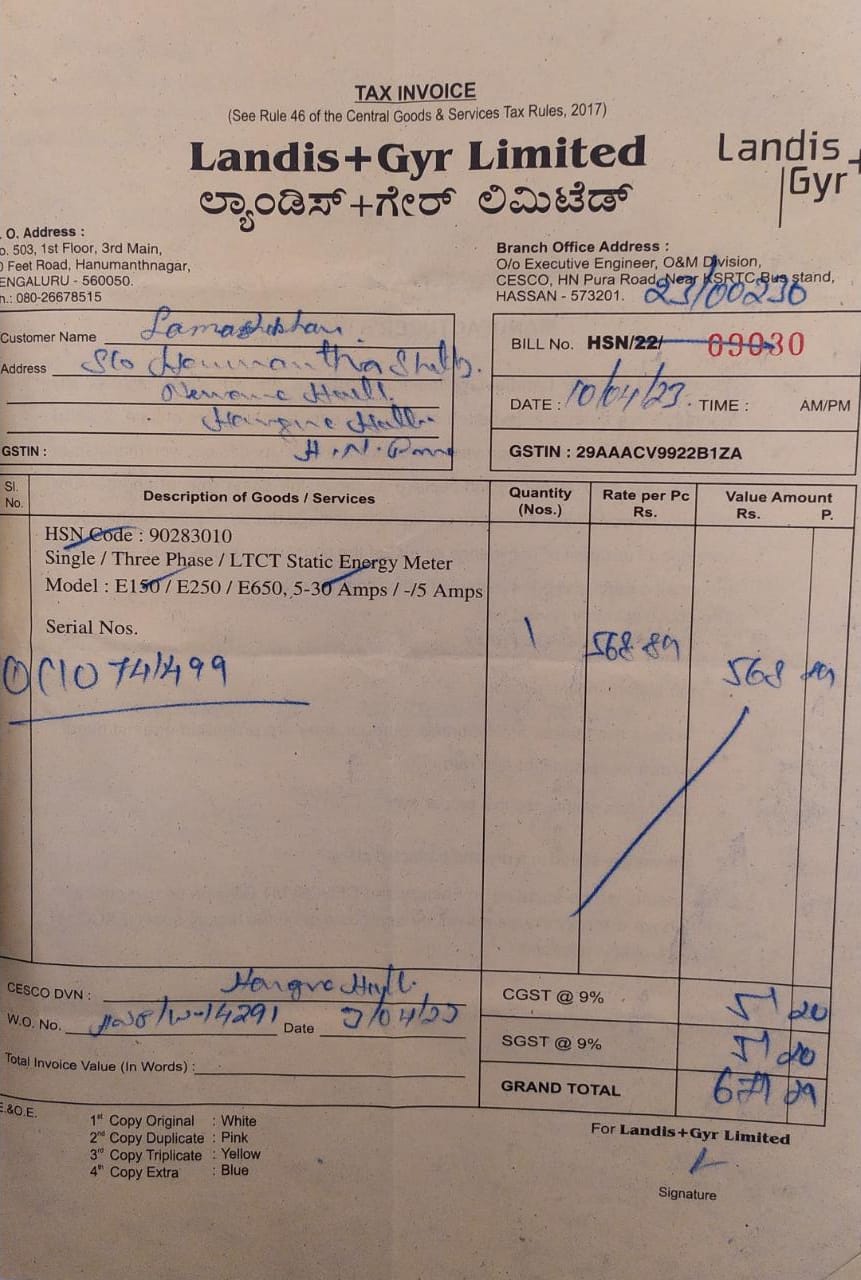 TAX INVOICE
(See Rule 46 of the Central Goods & Services Tax Rules, 2017)
Landis+Gyr Limited
ಲ್ಯಾಂಡಿಸ್+ಗೇರ್ ಲಿಮಿಟೆಡ್
Landis+
Gyr
. O. Address :
o. 503, 1st Floor, 3rd Main,
0 Feet Road, Hanumanthnagar,
ENGALURU - 560050.
n.: 080-26678515
Branch Office Address :
O/o Executive Engineer, O&M Division,
CESCO, HN Pura Road, Near KSRTC Bus stand,
HASSAN - 573201.
23/00230
Customer Name
Address S/o
GSTIN :
BILL No. HSN/22/ 09030
DATE : 10/04/23 TIME : AM/PM
GSTIN : 29AAACV9922B1ZA
Sl. No. Description of Goods / Services Quantity (Nos.) Rate per Pc Rs. Value Amount Rs. P.
HSN Code : 90283010
Single / Three Phase / LTCT Static Energy Meter
Model : E150 / E250 / E650, 5-30 Amps / -/5 Amps
Serial Nos.
1 568 89 568 89
1
CESCO DVN :
W.O. No. Date
Total Invoice Value (In Words) :
CGST @ 9% 51 20
SGST @ 9% 51 20
GRAND TOTAL 671 29
E.&O.E.
1st Copy Original : White
2nd Copy Duplicate : Pink
3rd Copy Triplicate : Yellow
4th Copy Extra : Blue
For Landis+Gyr Limited
Signature